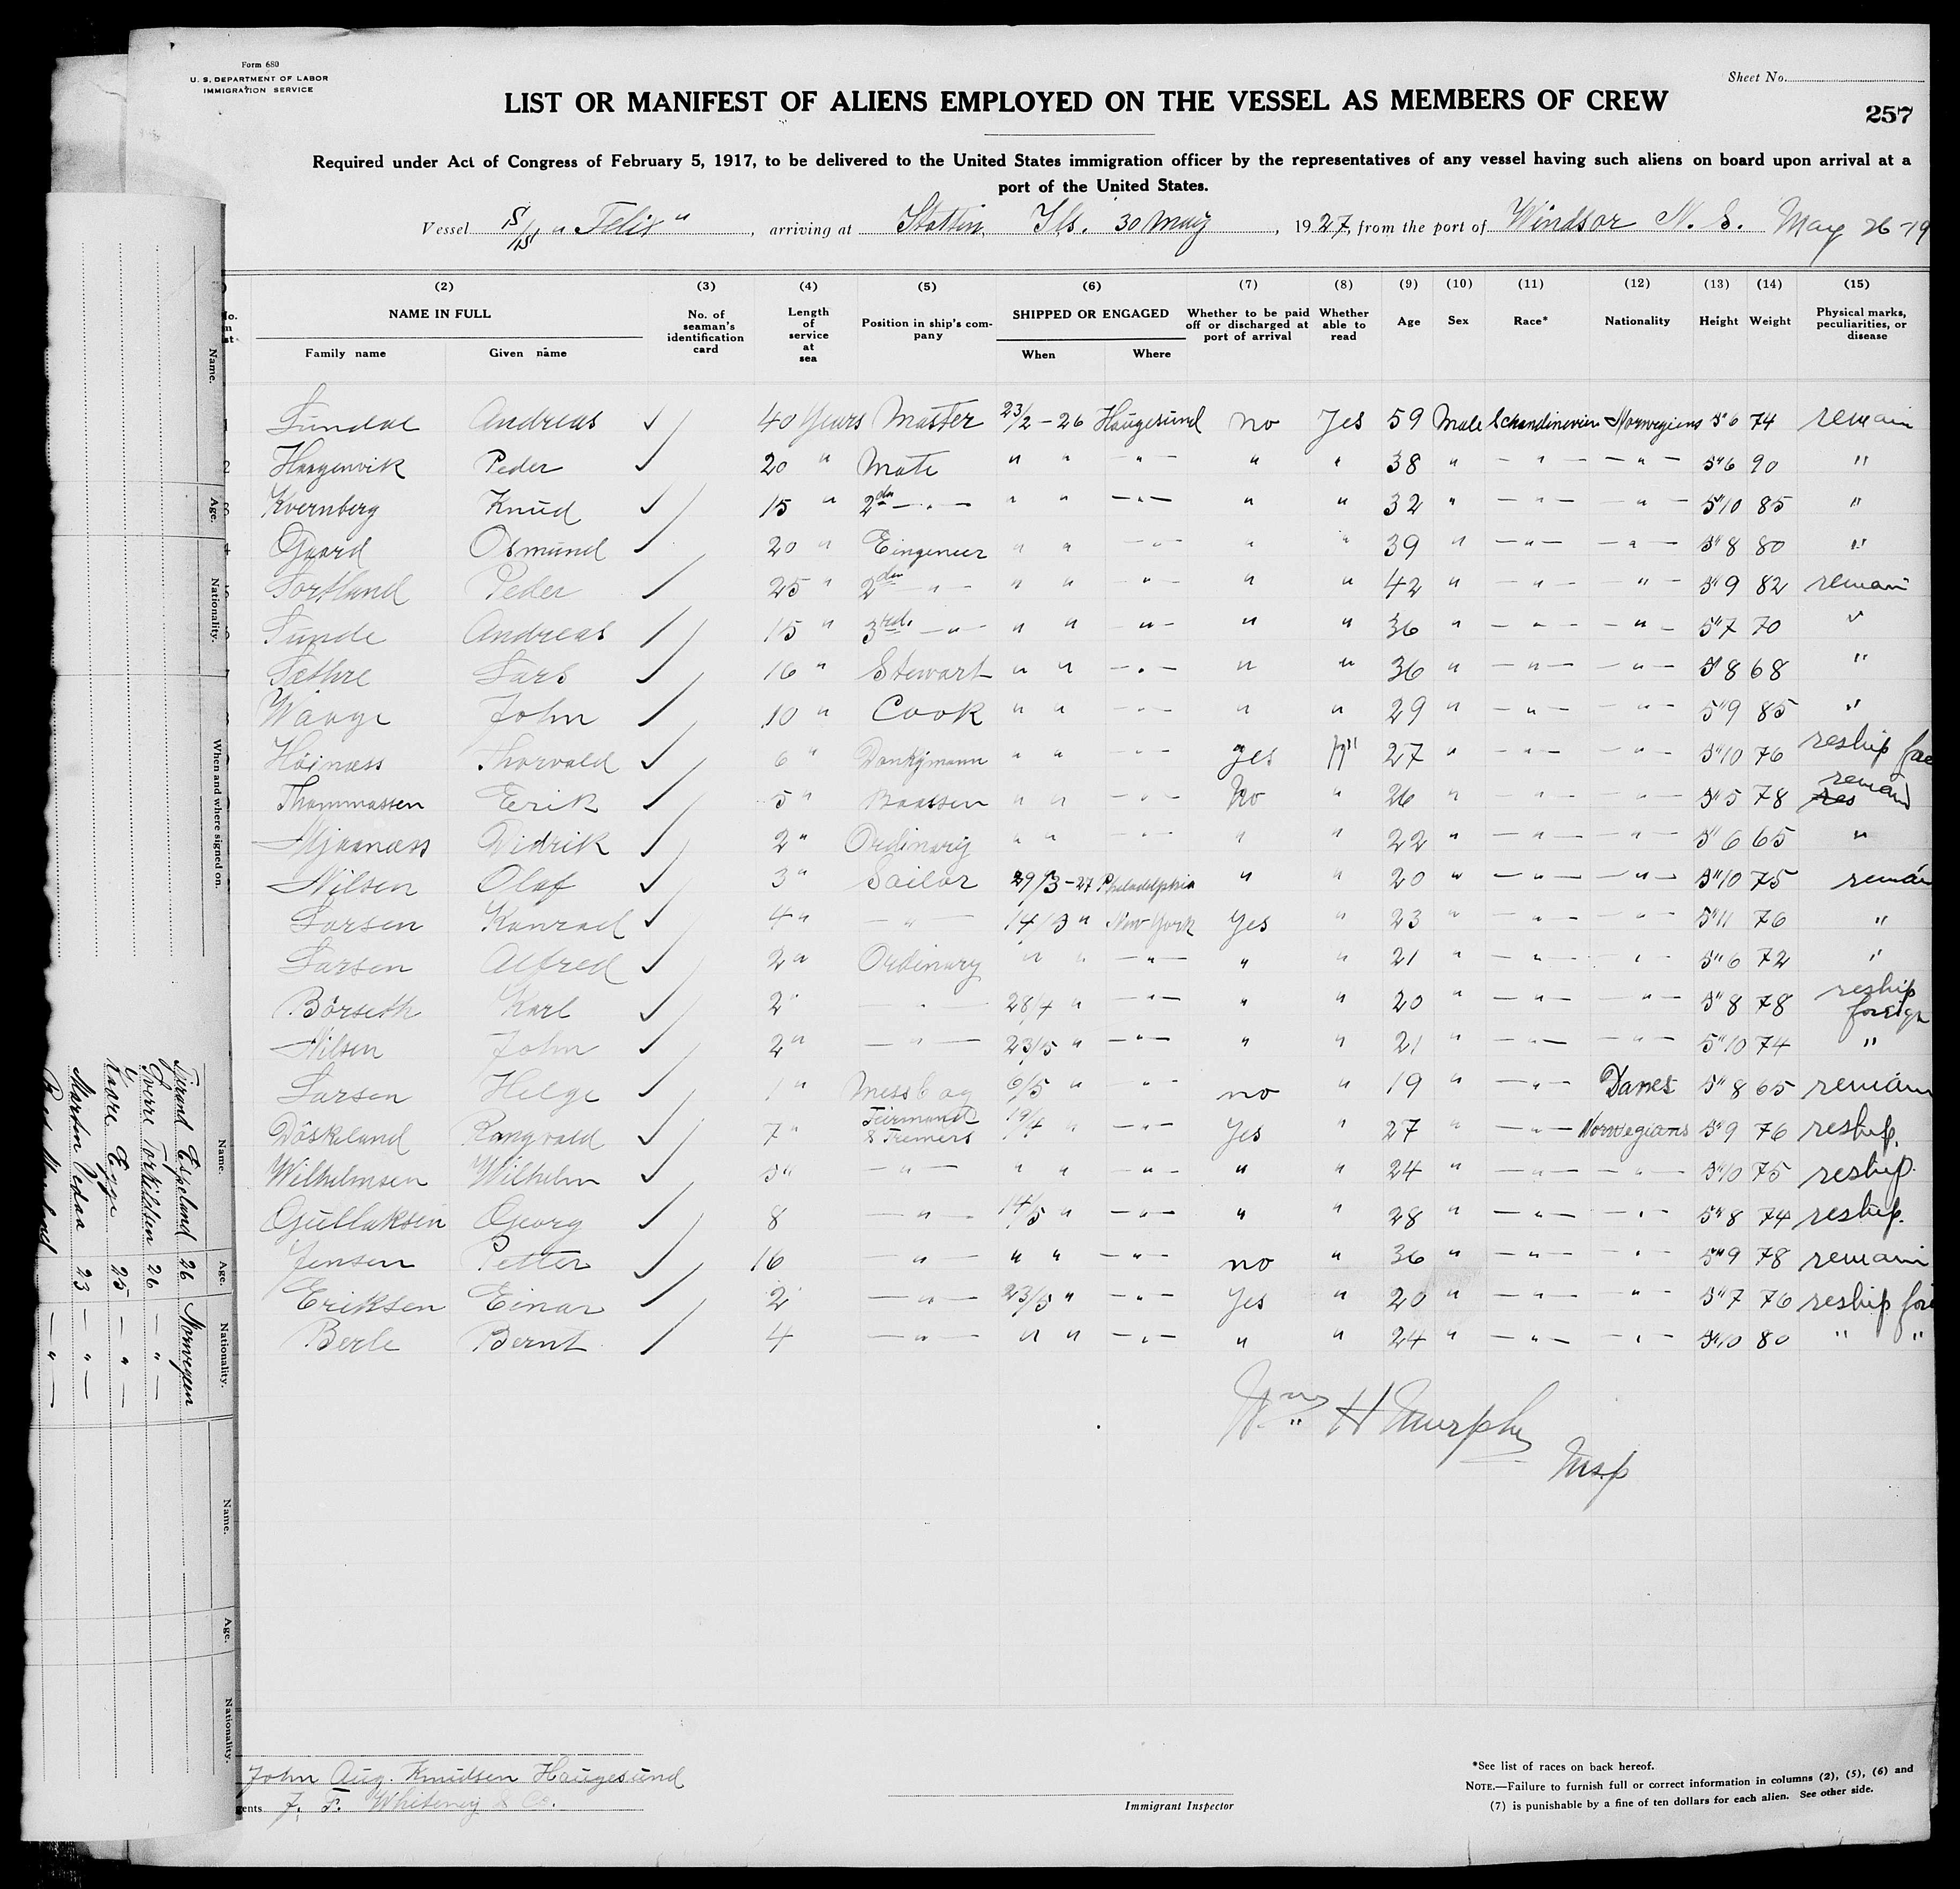 Form 680
U. S. DEPARTMENT OF LABOR
IMMIGRATION SERVICE
Sheet No.
LIST OR MANIFEST OF ALIENS EMPLOYED ON THE VESSEL AS MEMBERS OF CREW
257
Required under Act of Congress of February 5, 1917, to be delivered to the United States immigration officer by the representatives of any vessel having such aliens on board upon arrival at a
port of the United States.
Vessel S/S "Felix", arriving at 30 May, 1927, from the port of Windsor N. S. May 26-19
(2) (3) (4) (5) (6) (7) (8) (9) (10) (11) (12) (13) (14) (15)
NAME IN FULL No. of seaman's identification card Length of service at sea Position in ship's company SHIPPED OR ENGAGED Whether to be paid off or discharged at port of arrival Whether able to read Age Sex Race* Nationality Height Weight Physical marks, peculiarities, or disease
Family name Given name When Where
1 Sundal Andreas ✓ 40 Years Master 23/2-26 Haugesund no Yes 59 Male Schandinavien Norwegiens 5"6 74 remain
2 Haagenvik Peder ✓ 20 " Mate " " — " — " " 38 " — " — — " — 5"6 90 "
Kvernberg Knud ✓ 15 " 2dn — " — " " — " — " " 32 " — " — — " — 5"10 85 "
4 Gaard Osmund ✓ 20 " Eingeneer " " — " — " " 39 " — " — — " — 5"8 80 "
Tortland Peder ✓ 25 " 2dn — " — " " — " — " " 42 " — " — — " — 5"9 82 remain
Sunde Andreas ✓ 15 " 3rd. — " — " " — " — " " 36 " — " — — " — 5"7 70 "
7 Sæthre Lars ✓ 16 " Stewart " " — " — " " 36 " — " — — " — 5"8 68 "
Waage John ✓ 10 " Cook " " — " — " " 29 " — " — — " — 5"9 85 "
Höinæss Thorvald ✓ 6 " Donkymann " " — " — yes " 27 " — " — — " — 5"10 76 reship
Thommassen Eerik ✓ 5 " " " — " — No " 26 " — " — — " — 5"5 78 remain
Mjaanæss Didrik ✓ 2 " Ordinary " " — " — " " 22 " — " — — " — 5"6 65 "
Nilsen Olaf ✓ 3 " Sailor 29/3-27 Philadelphia " " 20 " — " — — " — 5"10 75 remain
Larsen Konrad ✓ 4 " — " — 14/3 " New York Yes " 23 " — " — — " — 5"11 76 "
Larsen Alfred ✓ 2 " Ordinary " " — " — " " 21 " — " — — " — 5"6 72 "
Börseth Karl ✓ 2 " — " — 28/4 " — " — " " 20 " — " — — " — 5"8 78 reship foreign
Nilsen John ✓ 2 " — " — 23/5 " — " — " " 21 " — " — — " — 5"10 74 "
Larsen Helge ✓ " 6/5 " — " — no " 19 " — " — Danes 5"8 65 remain
Döskeland Rangvald ✓ 7 " Feirmand & Tremers " — " — Yes " 27 " — " — Norwegians 5"9 76 reship.
Wilhelmsen Wilhelm ✓ 5 " — " — " " — " — " " 24 " — " — — " — 5"10 75 reship.
Gullaksen Georg ✓ 8 — " — 14/5 " — " — " " 28 " — " — — " — 5"8 74 reship.
Jensen Petter ✓ 16 — " — " " — " — no " 36 " — " — — " — 5"9 78 remain
Eriksen Einar ✓ 2 — " — 23/5 " — " — Yes " 20 " — " — — " — 5"7 76 reship
Berle Bernt ✓ 4 — " — " " — " — " " 24 " — " — — " — 5"10 80 " "
Wm H Murphy
Insp
John Aug. Knudsen Haugesund
J. F. Whitney & Co.
Immigrant Inspector
*See list of races on back hereof.
NOTE.—Failure to furnish full or correct information in columns (2), (5), (6) and
(7) is punishable by a fine of ten dollars for each alien. See other side.
Name. Age. Nationality. When and where signed on.
Name. Age. Nationality.
Espeland 26 Norwegeen
Sverre Torkildsen 26 — " —
Kaare Egge 25 — " —
Martin Vedaa 23 — " —
— " —
Name. Age. Nationality.